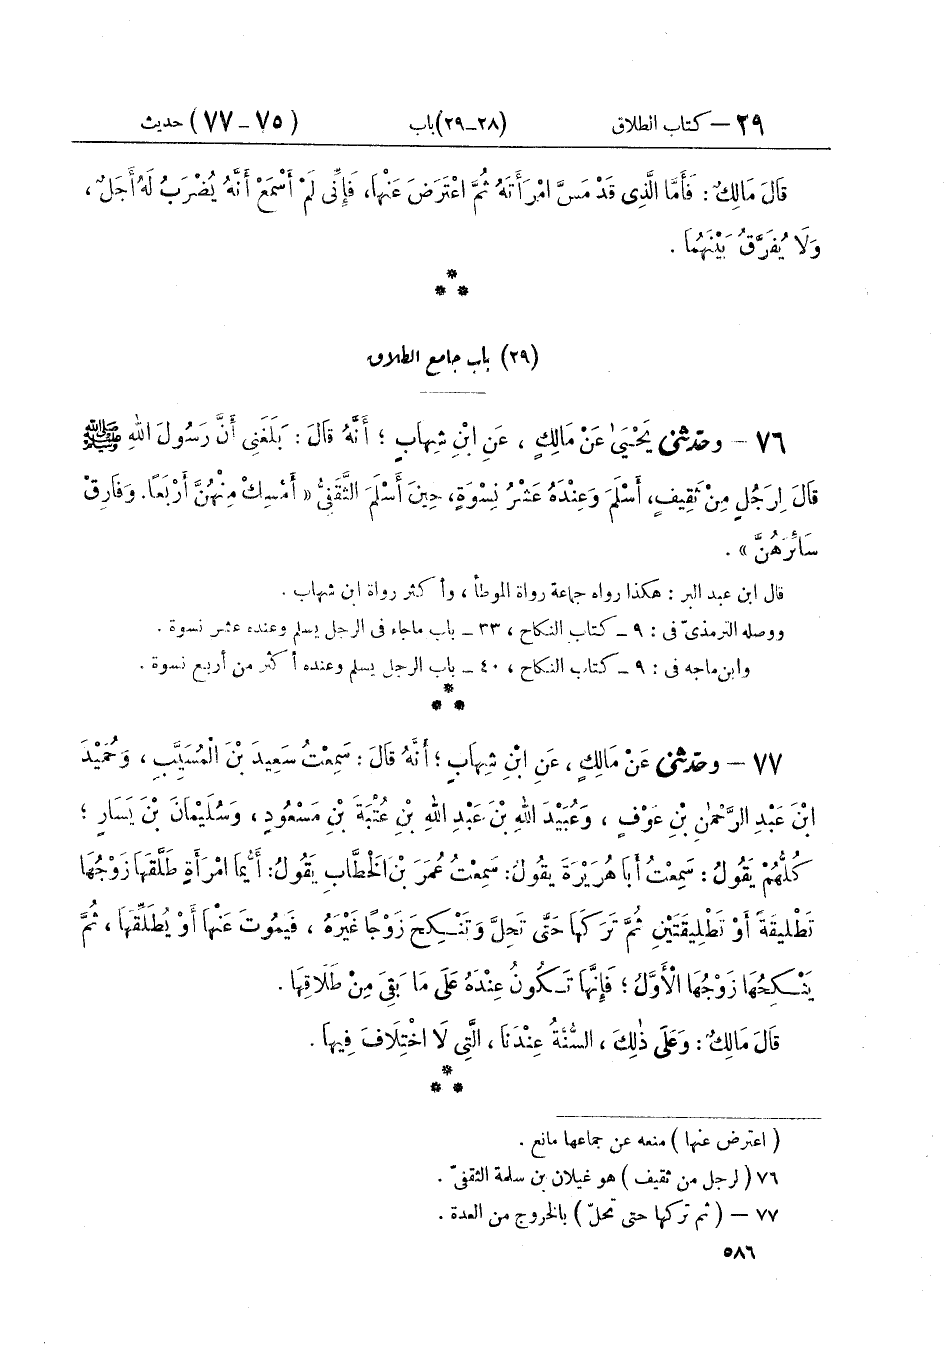 ٢٩ – كتاب الطلاق (٢٨ – ٢٩) باب (٧٥ – ٧٧) حديث
قَالَ مَالِكٌ : فَأَمَّا الَّذِى قَدْ مَسَّ امْرَأَتَهُ ثُمَّ اعْتَرَضَ عَنْهَا، فَإِنِّى لَمْ أَسْمَعْ أَنَّهُ يُضْرَبُ لَهُ أَجَلٌ ،
وَلَا يُفَرَّقُ بَيْنَهُمَا .
(٢٩) باب جامع الطلاق
٧٦ – وحدّثنى يَحْيَىٰ عَنْ مَالِكٍ ، عَنِ ابْنِ شِهَابٍ ؛ أَنَّهُ قَالَ : بَلَغَنِى أَنَّ رَسُولَ اللهِ ﷺ
قَالَ لِرَجُلٍ مِنْ ثَقِيفٍ، أَسْلَمَ وَعِنْدَهُ عَشْرُ نِسْوَةٍ، حِينَ أَسْلَمَ الثَّقَفِىُّ « أَمْسِكْ مِنْهُنَّ أَرْبَعًا. وَفَارِقْ
سَائِرَهُنَّ » .
قال ابن عبد البر : هكذا رواه جماعة رواة الموطأ ، وأكثر رواة ابن شهاب .
ووصله الترمذىّ فى : ٩ – كتاب النكاح ، ٣٣ – باب ماجاء فى الرجل يسلم وعنده عشر نسوة .
وابن ماجه فى : ٩ – كتاب النكاح ، ٤٠ – باب الرجل يسلم وعنده أكثر من أربع نسوة .
٧٧ – وحدّثنى عَنْ مَالِكٍ ، عَنِ ابْنِ شِهَابٍ ؛ أَنَّهُ قَالَ : سَمِعْتُ سَعِيدَ بْنَ الْمُسَيَّبِ ، وَحُمَيْدَ
ابْنَ عَبْدِ الرَّحْمٰنِ بْنِ عَوْفٍ ، وَعُبَيْدَ اللهِ بْنَ عَبْدِ اللهِ بْنِ عُتْبَةَ بْنِ مَسْعُودٍ ، وَسُلَيْمَانَ بْنَ يَسَارٍ ؛
كُلُّهُمْ يَقُولُ : سَمِعْتُ أَبَا هُرَيْرَةَ يَقُولُ: سَمِعْتُ عُمَرَ بْنَ الْخَطَّابِ يَقُولُ: أَيُّمَا امْرَأَةٍ طَلَّقَهَا زَوْجُهَا
تَطْلِيقَةً أَوْ تَطْلِيقَتَيْنِ ثُمَّ تَرَكَهَا حَتَّى تَحِلَّ وَتَنْكِحَ زَوْجًا غَيْرَهُ ، فَيَمُوتَ عَنْهَا أَوْ يُطَلِّقَهَا ، ثُمَّ
يَنْكِحُهَا زَوْجُهَا الْأَوَّلُ ؛ فَإِنَّهَا تَكُونُ عِنْدَهُ عَلَى مَا بَقِىَ مِنْ طَلَاقِهَا .
قَالَ مَالِكٌ : وَعَلَى ذٰلِكَ ، السُّنَّةُ عِنْدَنَا ، الَّتِى لَا اخْتِلَافَ فِيهَا .
( اعترض عنها ) منعه عن جماعها مانع .
٧٦ ( لرجل من ثقيف ) هو غيلان بن سلمة الثقفىّ .
٧٧ – ( ثم تركها حتى تحلّ ) بالخروج من العدة .
٥٨٦